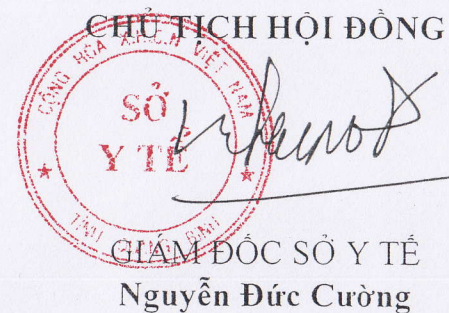 CHỦ TỊCH HỘI ĐỒNG
CỘNG HÒA X.H.C.N VIỆT NAM
SỞ
Y TẾ
TỈNH QUẢNG BÌNH
GIÁM ĐỐC SỞ Y TẾ
Nguyễn Đức Cường